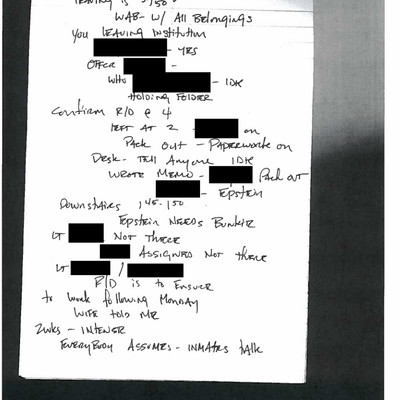 WAB- w/ All Belongings
you Leaving Institution
- YES
Officer -
Who - IDK
Holding Folder
Confirm R/D @ 4
Left AT 2 - on
Pack Out - Paperwork on
Desk - Tell Anyone IDK
Wrote Memo - Pack out
- Epstein
Downstairs 1:45-1:50
Epstein Needs Bunkie
LT NOT THERE
ASSIGNED NOT THERE
LT /
R/D is to Ensure
to work following Monday
WIFE told ME
2wks - INTENSE
EVERYBODY ASSUMES - INMATES talk